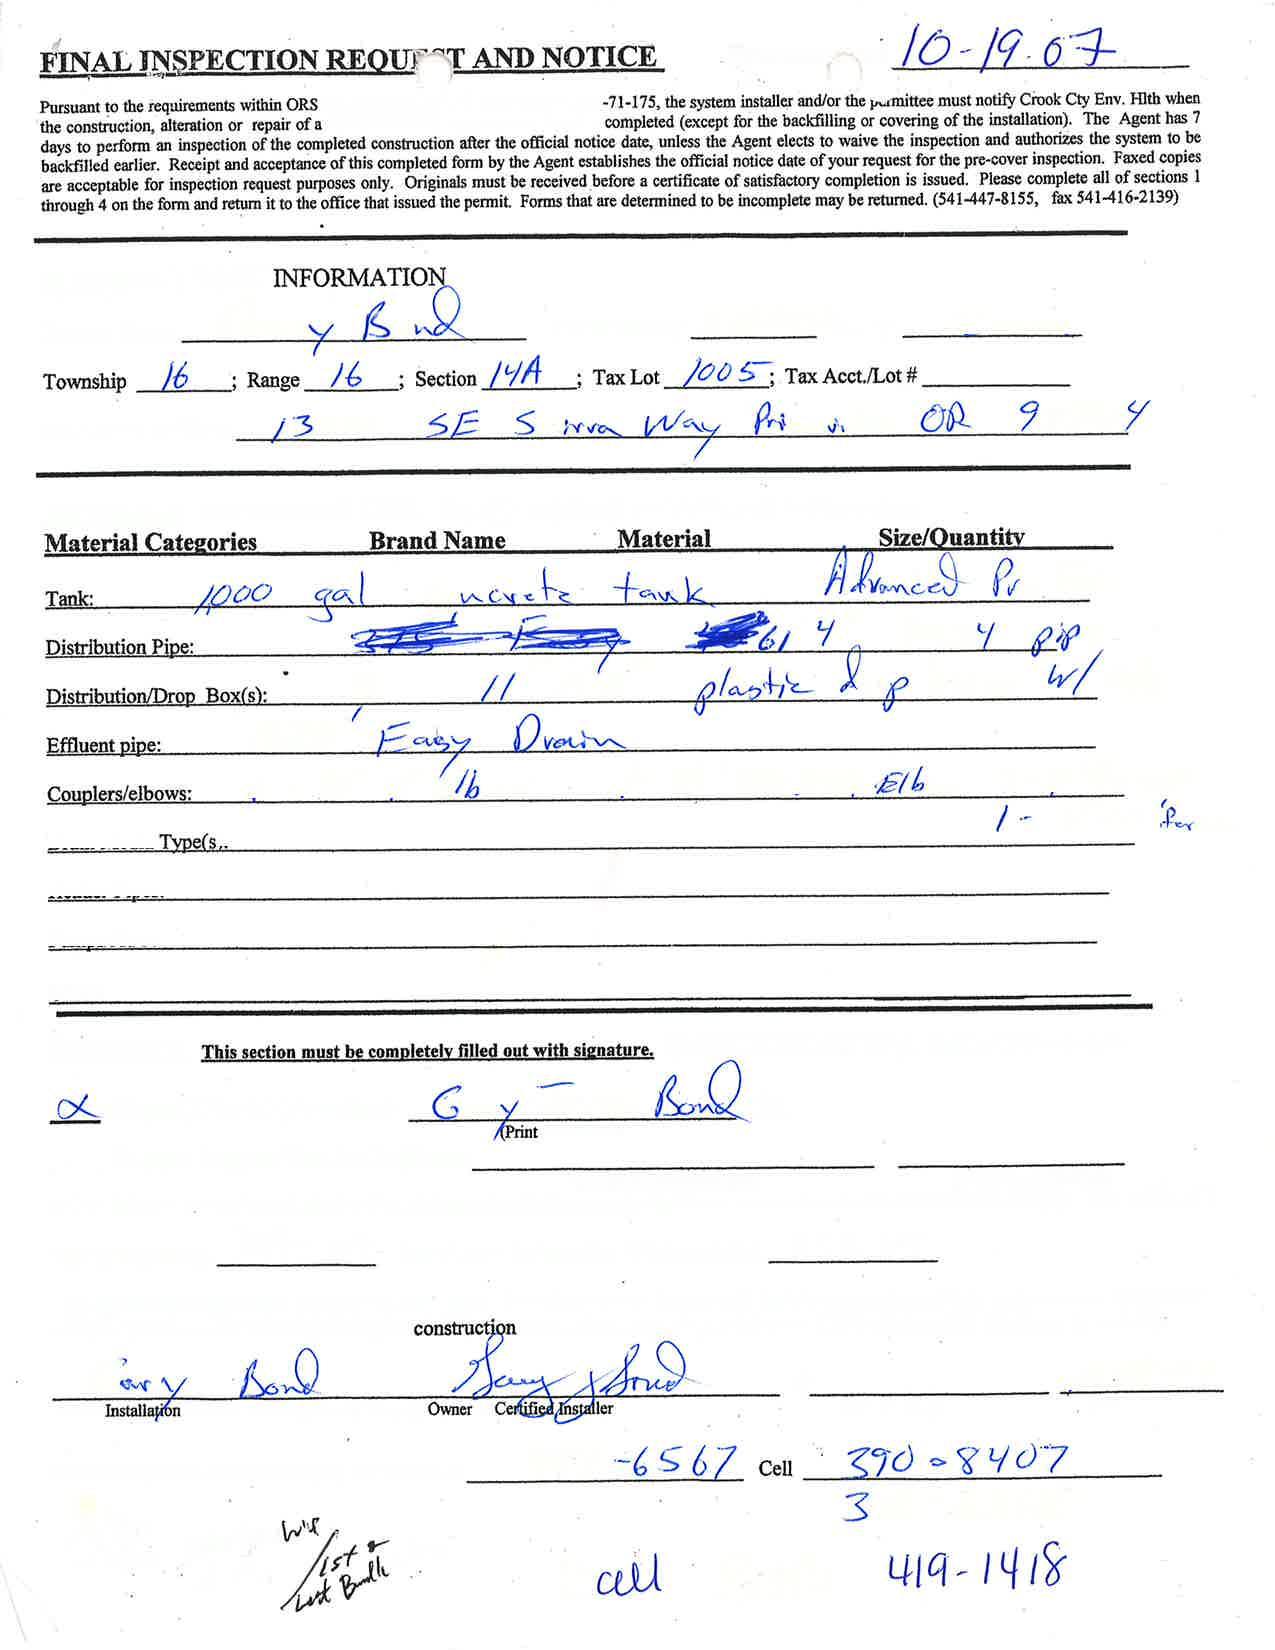 10-19.07
FINAL INSPECTION REQUEST AND NOTICE
Pursuant to the requirements within ORS -71-175, the system installer and/or the permittee must notify Crook Cty Env. Hlth when
the construction, alteration or repair of a completed (except for the backfilling or covering of the installation). The Agent has 7
days to perform an inspection of the completed construction after the official notice date, unless the Agent elects to waive the inspection and authorizes the system to be
backfilled earlier. Receipt and acceptance of this completed form by the Agent establishes the official notice date of your request for the pre-cover inspection. Faxed copies
are acceptable for inspection request purposes only. Originals must be received before a certificate of satisfactory completion is issued. Please complete all of sections 1
through 4 on the form and return it to the office that issued the permit. Forms that are determined to be incomplete may be returned. (541-447-8155, fax 541-416-2139)
INFORMATION
y B nd
Township 16 ; Range 16 ; Section 14A ; Tax Lot 1005 ; Tax Acct./Lot #
13 SE S rra Way Pri vi OR 9 4
Material Categories Brand Name Material Size/Quantity
Tank: 1,000 gal ncrete tank Advanced Pr
Distribution Pipe: 4 4 pip
Distribution/Drop Box(s): 11 plastic d p w/
Effluent pipe: Easy Drain
Couplers/elbows: 1b Elb
1 -
Type(s
This section must be completely filled out with signature.
G y Bond
(Print
construction
ary Bond Gary Bond
Installation Owner Certified Installer
-6567 Cell 390-8407
3
1st &
Last Bundle
cell 419-1418